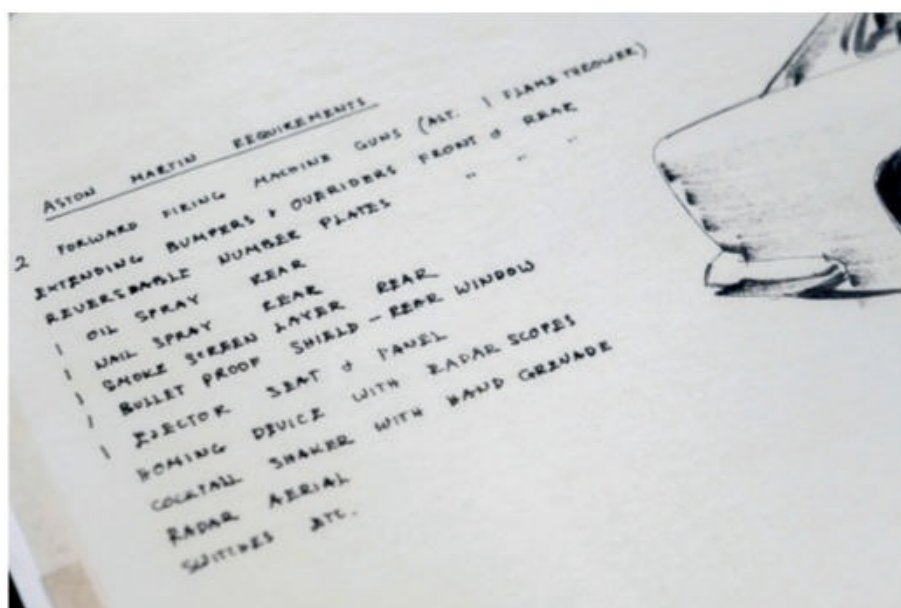 ASTON MARTIN REQUIREMENTS
2 FORWARD FIRING MACHINE GUNS (ALT. 1 FLAME THROWER)
EXTENDING BUMPERS & OVERIDERS FRONT & REAR
REVERSDABLE NUMBER PLATES " " "
1 OIL SPRAY REAR
1 NAIL SPRAY REAR
1 SMOKE SCREEN LAYER REAR
1 BULLET PROOF SHIELD - REAR WINDOW
1 EJECTOR SEAT & PANEL
HOMING DEVICE WITH RADAR SCOPES
COCKTAIL SHAKER WITH HAND GRENADE
RADAR AERIAL
SWITCHES ETC.